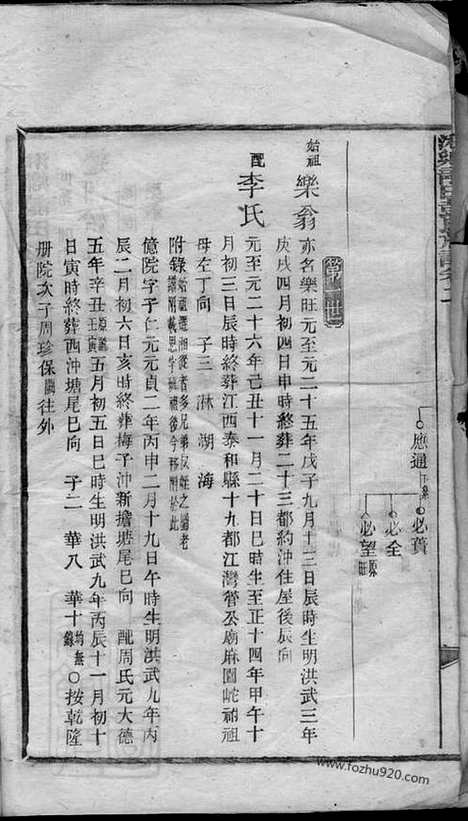 應通
必貢
必全
必望
第一世
始祖 樂翁 亦名樂旺元至元二十五年戊子九月十三日辰時生明洪武三年
庚戌四月初四日申時終葬二十三都約沖住屋後辰向
配 李氏 元至元二十六年己丑十一月二十日巳時生至正十四年甲午十
月初三日辰時終葬江西泰和縣十九都江灣管公廟麻園蛇祔祖
母左丁向 子三 淋 湖 海
附錄
億院字子仁元元貞二年丙申二月十九日午時生明洪武九年丙
辰二月初六日亥時終葬梅子沖新擔塘尾巳向 配周氏元大德
五年辛丑五月初五日巳時生明洪武九年丙辰十一月初十
日寅時終葬西沖塘尾巳向 子二 華八 華十 均無錄 ○按乾隆
册院次子周珍保往外
www.fozhu920.com